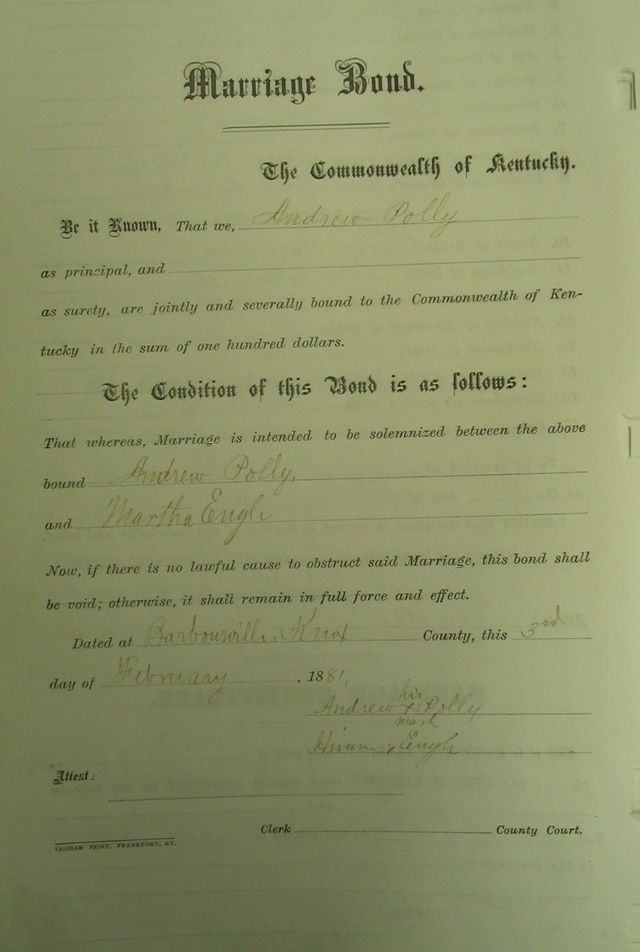 Marriage Bond.
The Commonwealth of Kentucky.
Be it Known, That we, Andrew Polly
as principal, and
as surety, are jointly and severally bound to the Commonwealth of Ken-
tucky in the sum of one hundred dollars.
The Condition of this Bond is as follows:
That whereas, Marriage is intended to be solemnized between the above
bound Andrew Polly,
and Martha Engle
Now, if there is no lawful cause to obstruct said Marriage, this bond shall
be void; otherwise, it shall remain in full force and effect.
Dated at Barbourville Knox County, this 3rd
day of February, 1881,
his
Andrew x Polly
mark
Hiram x Engle
Attest:
Clerk County Court.
YEOMAN PRINT, FRANKFORT, KY.